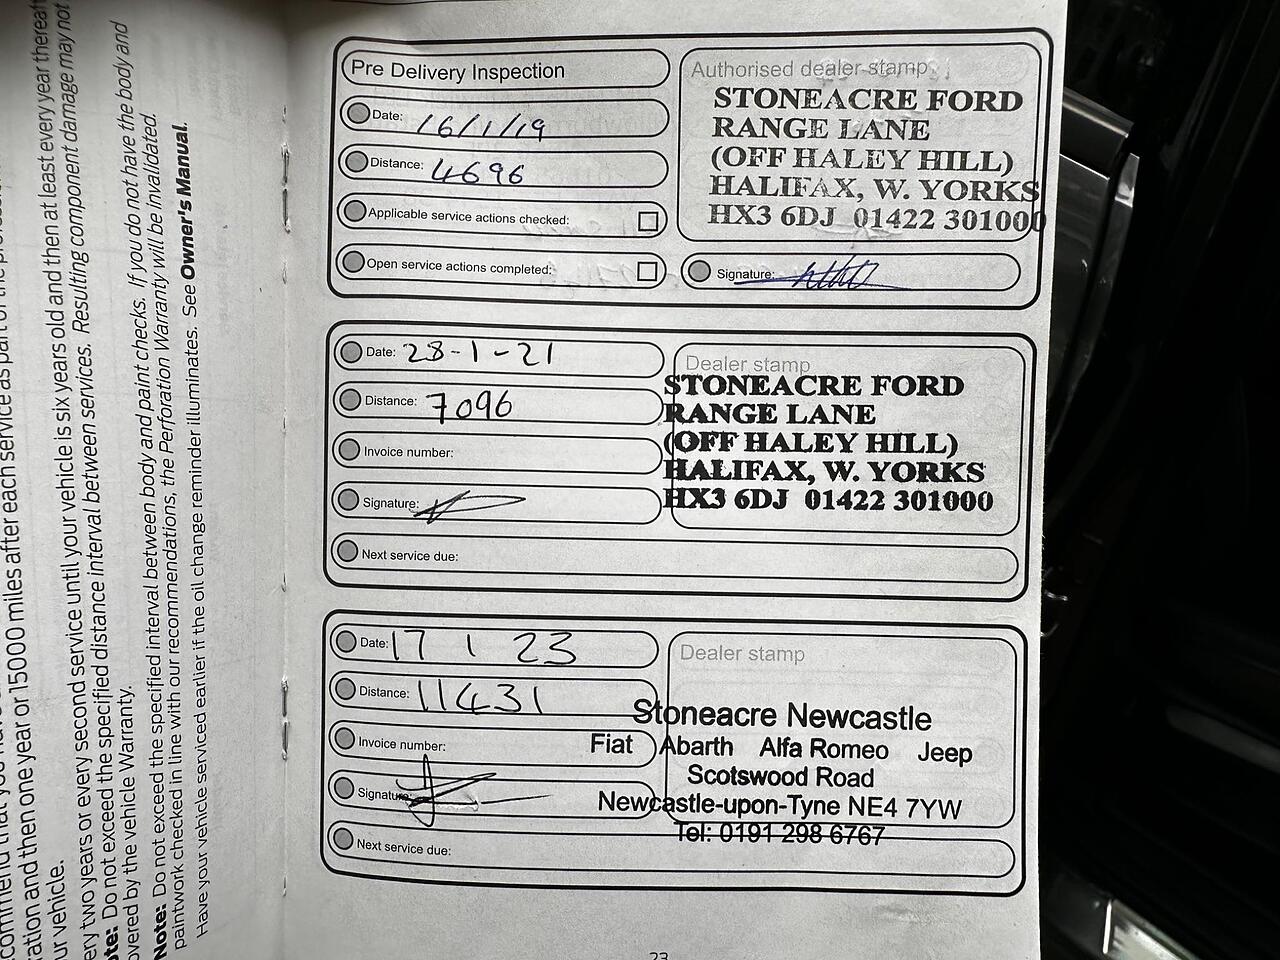 commend that you have
ration and then one year or 15000 miles after each service as part of the
our vehicle.
ery two years or every second service until your vehicle is six years old and then at least every year thereaft
ote: Do not exceed the specified distance interval between services. Resulting component damage may not
overed by the vehicle Warranty.
Note: Do not exceed the specified interval between body and paint checks. If you do not have the body and
paintwork checked in line with our recommendations, the Perforation Warranty will be invalidated.
Have your vehicle serviced earlier if the oil change reminder illuminates. See Owner's Manual.
Pre Delivery Inspection
Date: 16/1/19
Distance: 4696
Applicable service actions checked:
Open service actions completed:
Authorised dealer stamp
STONEACRE FORD
RANGE LANE
(OFF HALEY HILL)
HALIFAX, W. YORKS
HX3 6DJ 01422 301000
Signature:
Date: 28-1-21
Distance: 7096
Invoice number:
Signature:
Next service due:
Dealer stamp
STONEACRE FORD
RANGE LANE
(OFF HALEY HILL)
HALIFAX, W. YORKS
HX3 6DJ 01422 301000
Date: 17 1 23
Distance: 11431
Invoice number:
Signature:
Next service due:
Dealer stamp
Stoneacre Newcastle
Fiat Abarth Alfa Romeo Jeep
Scotswood Road
Newcastle-upon-Tyne NE4 7YW
Tel: 0191 298 6767
23